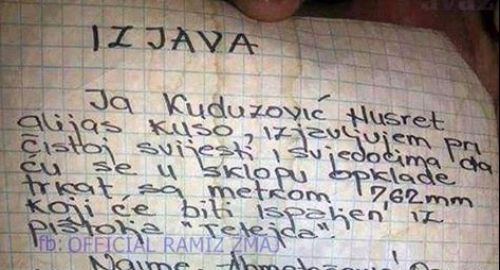 IZJAVA
Ja Kuduzović Nusret
alijas Kuso, izjavljujem pri
čistoj svijesti i svjedocima da
ću se u sklopu opklade
trkat sa metkom 7,62mm
koji će biti ispaljen iz
pištolja "Telejda".
fb: OFFICIAL RAMIZ ZMAJ
Naime,